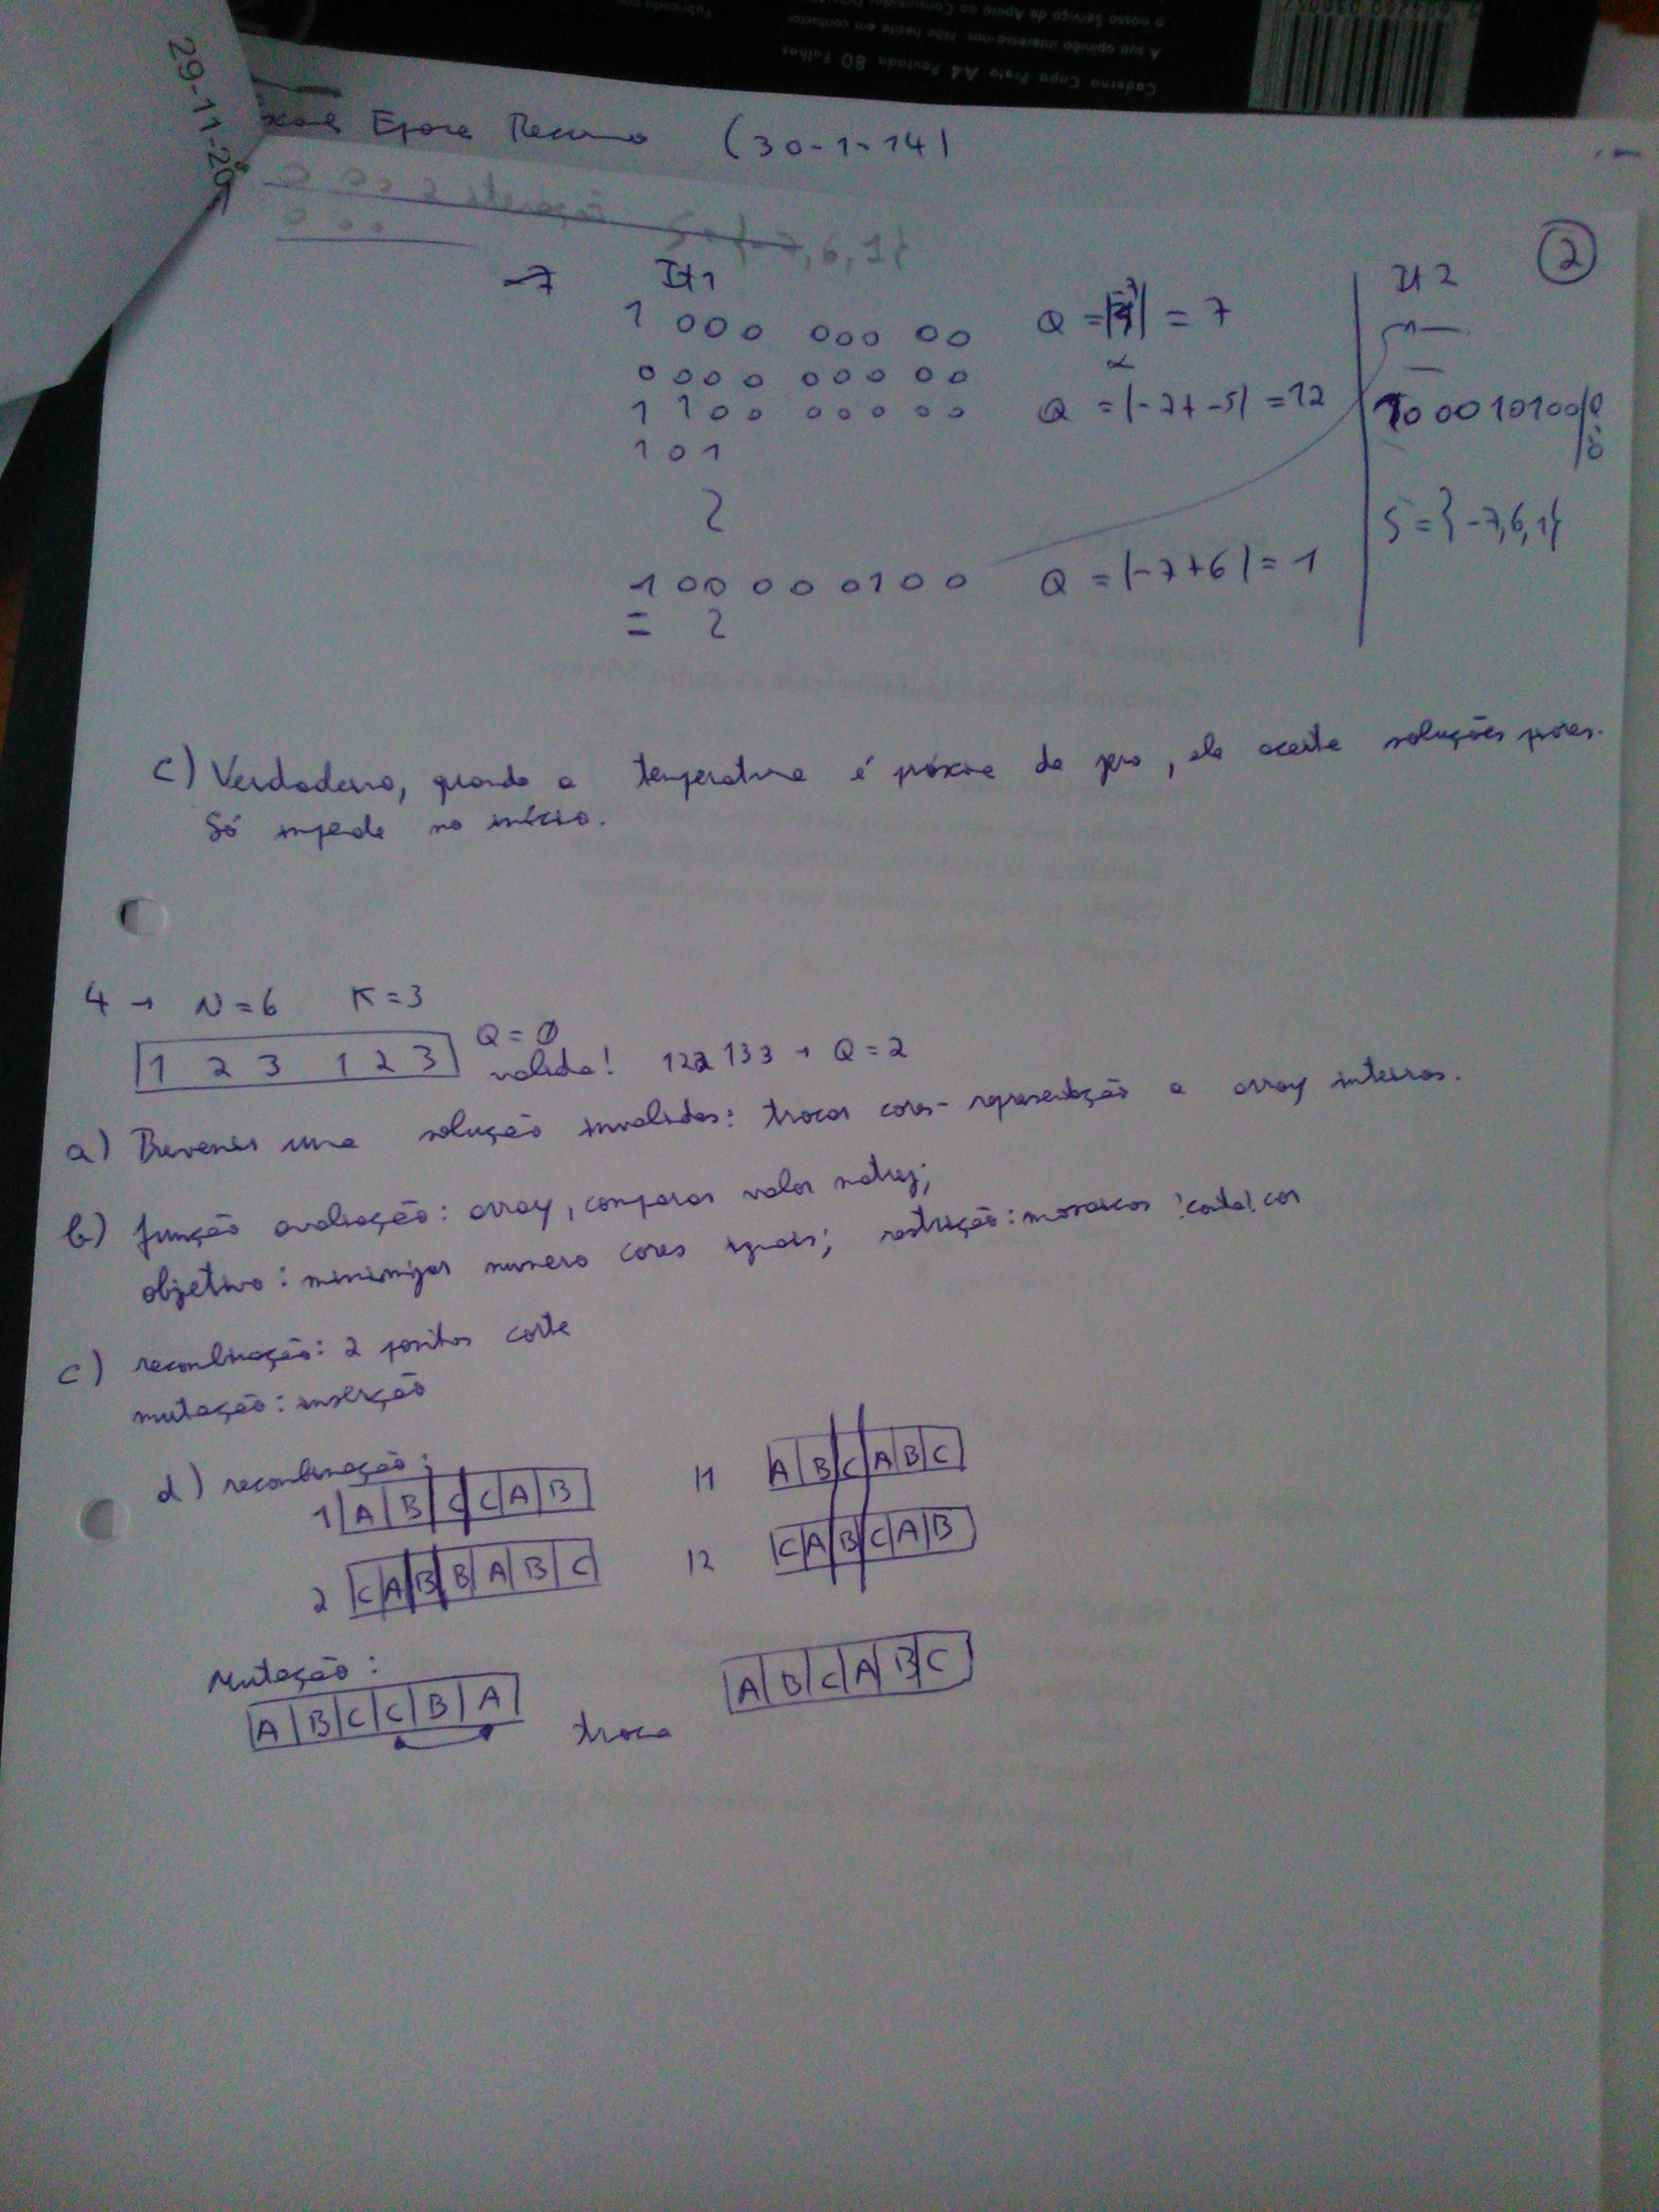 o nosso Serviço de Apoio ao Consumidor
A sua opinião interessa-nos. Não hesite em contactar
Caderno Capa Preta A4 Pautado 80 Folhas
Fabricado por
29-11-20
Epoca Recurso (30-1-14)
S={-7,6,1}
2
-7 It1
1 000 000 00 Q = |-7| = 7
0 000 00000
1 100 00000 Q = |-7+-5| = 12
101
100 000100 Q = |-7+6| = 1
It 2
1000010100
S = {-7,6,1}
c) Verdadeiro, quando a temperatura é próxima de zero, ele aceita soluções piores.
Só impede no início.
4 → N=6 K=3
1 2 3 1 2 3 Q=0
valida! 122 133 → Q=2
a) Prevenir uma solução invalidas: trocar cores - representação a array inteiros.
b) função avaliação: array, comparar valor matriz;
objetivo: minimizar numero cores iguais; restrição: mosaicos cor
c) recombinação: 2 pontos corte
mutação: inserção
d) recombinação:
1 A B C C A B
11 A B C A B C
2 C A B B A B C
12 C A B C A B
Mutação:
A B C C B A troca A B C A B C